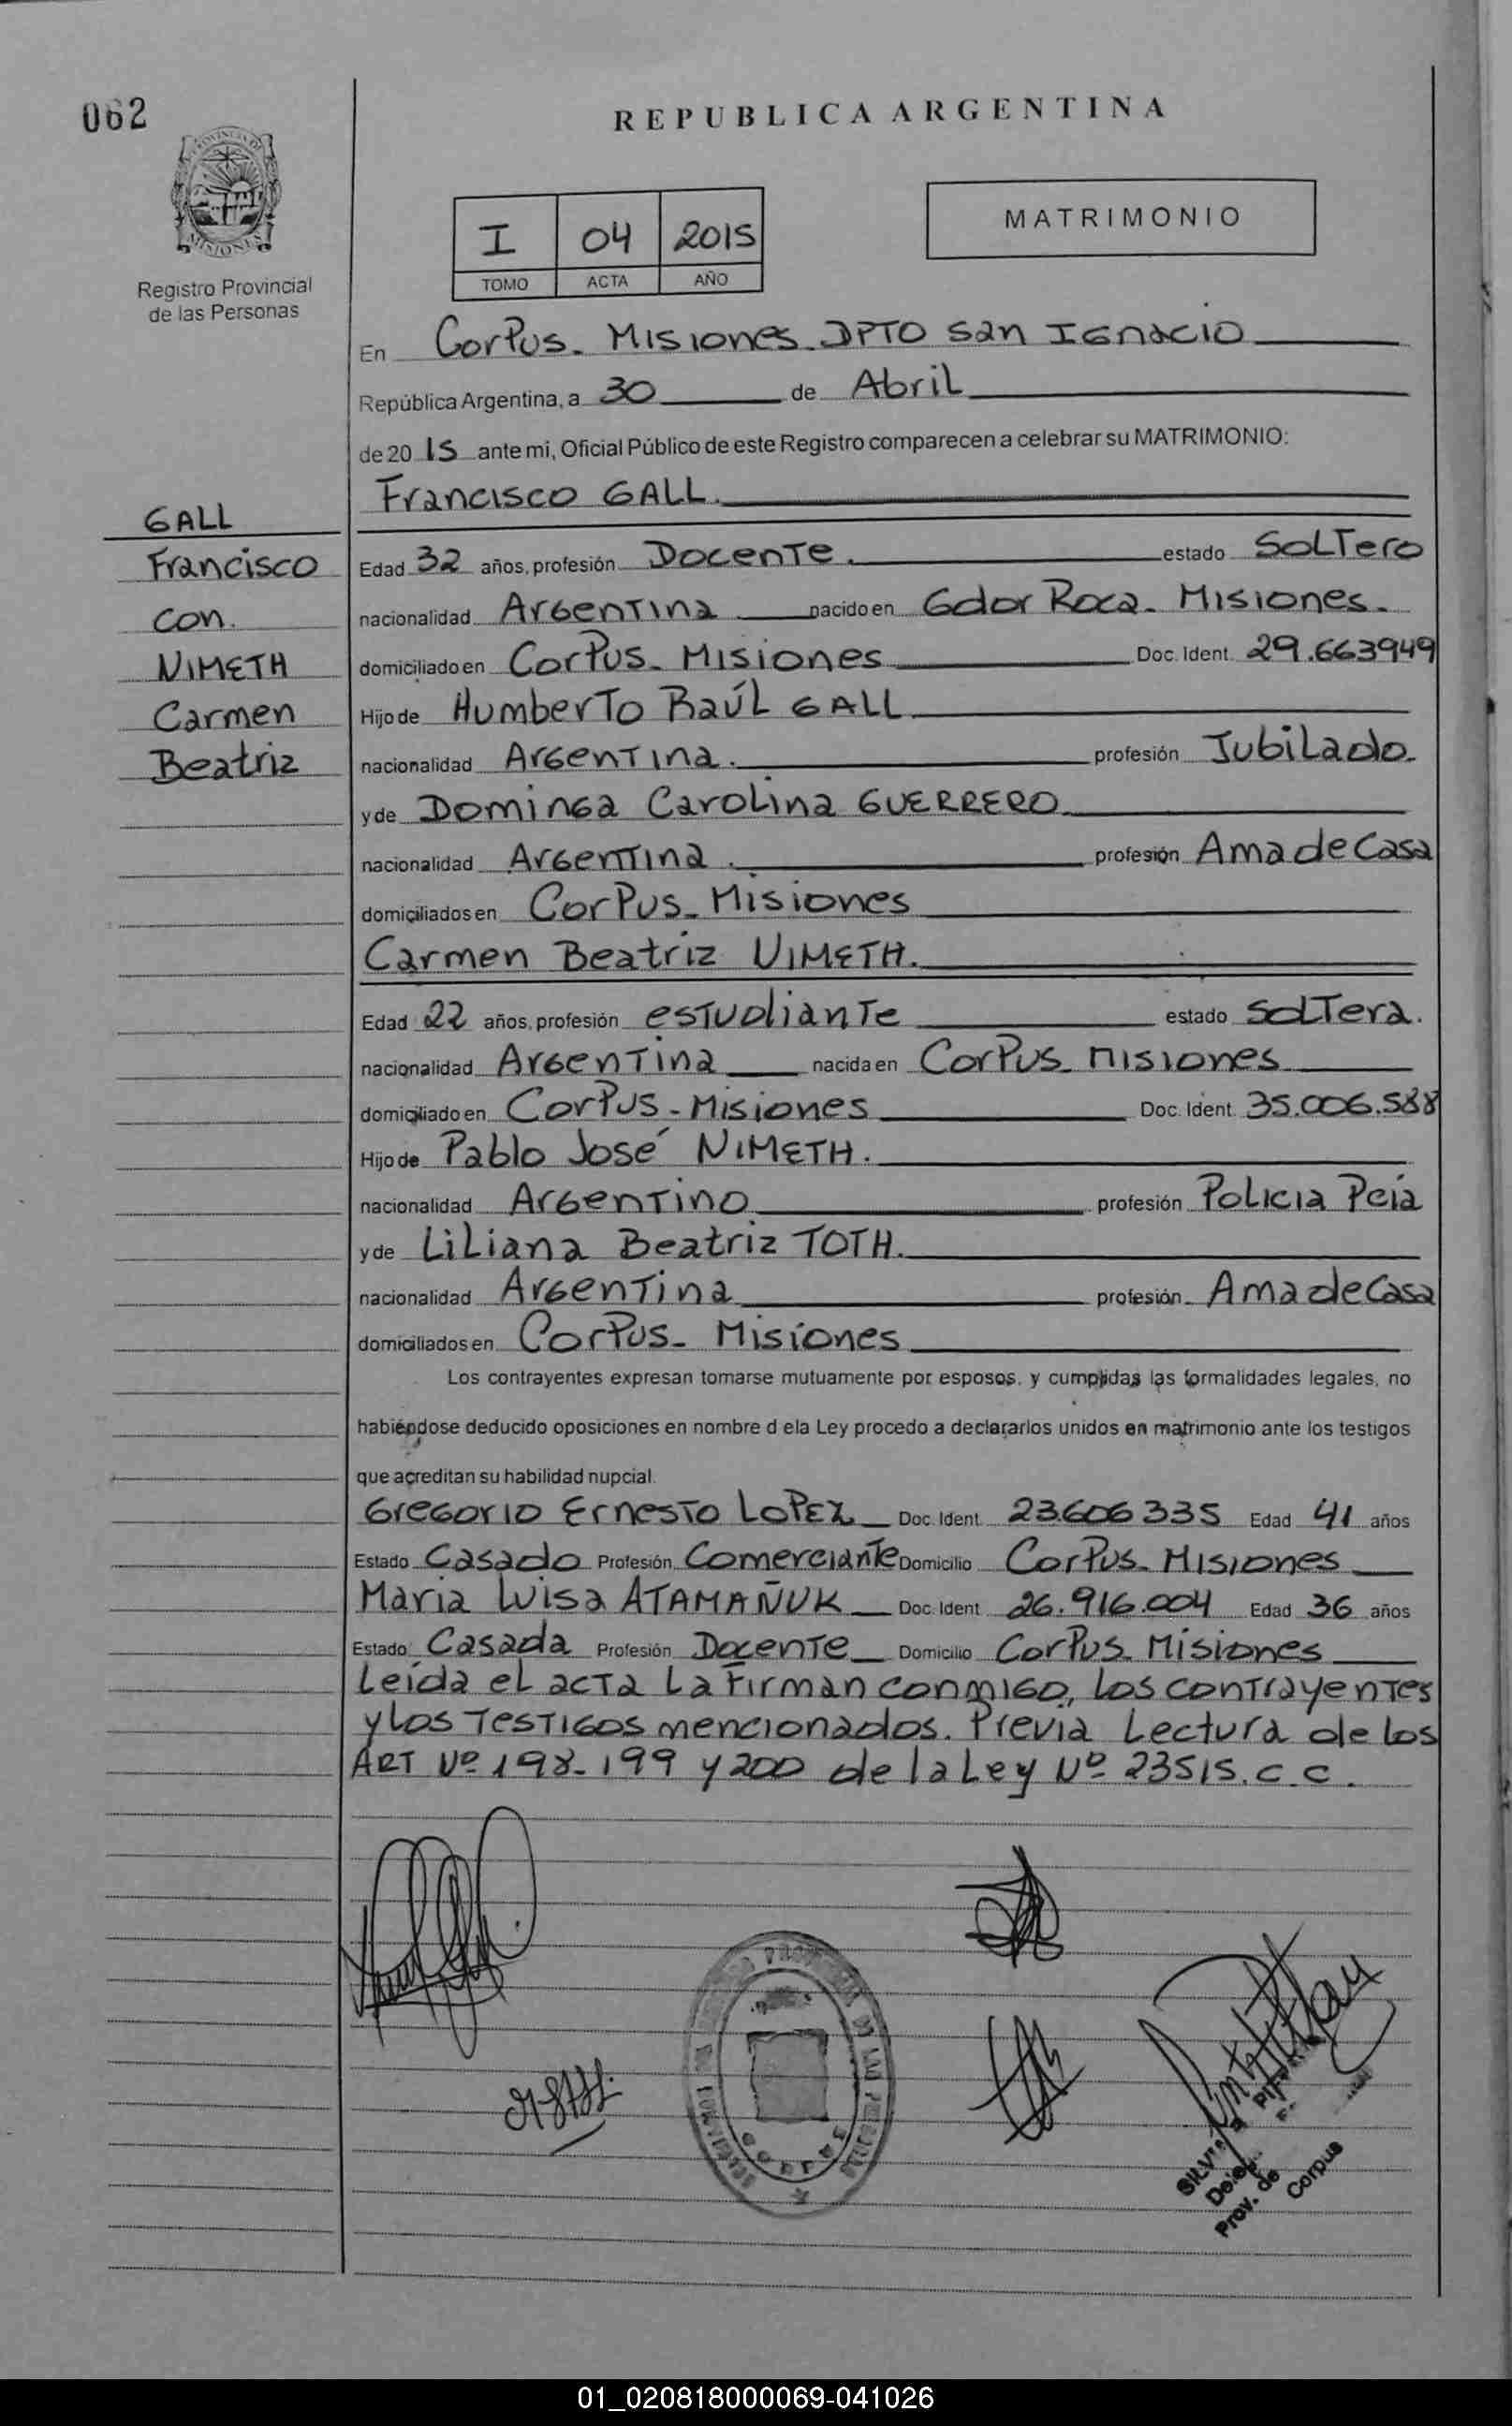 062
REPUBLICA ARGENTINA
PROVINCIA DE
MISIONES
Registro Provincial
de las Personas
I 04 2015
TOMO ACTA AÑO
MATRIMONIO
En Corpus - Misiones - DPTO San Ignacio
República Argentina, a 30 de Abril
de 2015 ante mi, Oficial Público de este Registro comparecen a celebrar su MATRIMONIO:
Francisco GALL.
GALL
Francisco
con.
NIMETH
Carmen
Beatriz
Edad 32 años, profesión Docente. estado Soltero
nacionalidad Argentina nacido en Gdor Roca - Misiones.
domiciliado en Corpus - Misiones Doc. Ident. 29.663949
Hijo de Humberto Raúl GALL
nacionalidad Argentina. profesión Jubilado.
y de Dominga Carolina GUERRERO
nacionalidad Argentina. profesión Ama de Casa
domiciliados en Corpus - Misiones
Carmen Beatriz NIMETH.
Edad 22 años, profesión estudiante estado Soltera.
nacionalidad Argentina nacida en Corpus - Misiones
domiciliado en Corpus - Misiones Doc. Ident. 35.006.588
Hijo de Pablo José NIMETH.
nacionalidad Argentino profesión Policia Pcia
y de Liliana Beatriz TOTH.
nacionalidad Argentina profesión Ama de Casa
domiciliados en Corpus - Misiones
Los contrayentes expresan tomarse mutuamente por esposos, y cumplidas las formalidades legales, no
habiéndose deducido oposiciones en nombre d ela Ley procedo a declararlos unidos en matrimonio ante los testigos
que acreditan su habilidad nupcial.
Gregorio Ernesto LOPEZ Doc. Ident. 23.606335 Edad 41 años
Estado Casado Profesión Comerciante Domicilio Corpus - Misiones
Maria Luisa ATAMAÑUK Doc. Ident. 26.916.004 Edad 36 años
Estado Casada Profesión Docente Domicilio Corpus - Misiones
Leída el acta La Firman conmigo, los contrayentes
y los Testigos mencionados. Previa Lectura de los
ART Nº 198-199 y 200 de la Ley Nº 23515.C.C.
Prov. de Corpus
01_020818000069-041026